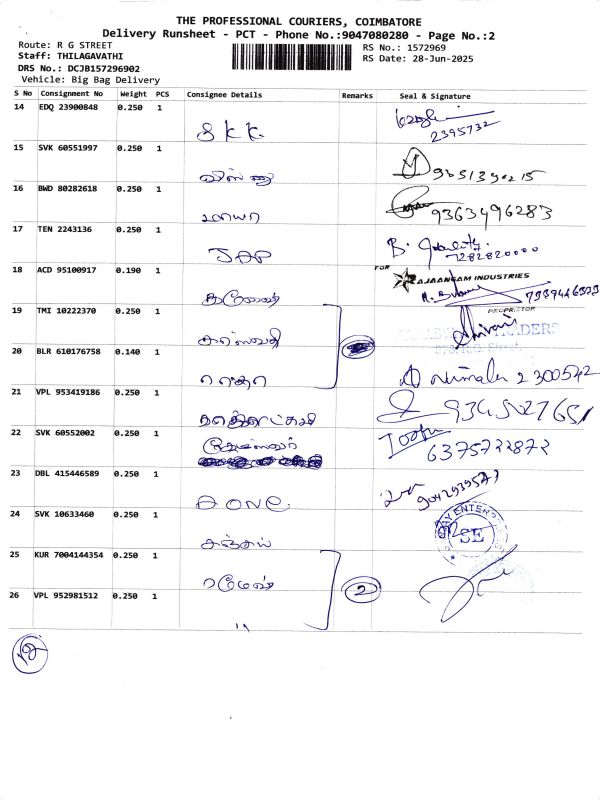 THE PROFESSIONAL COURIERS, COIMBATORE
Delivery Runsheet - PCT - Phone No.:9047080280 - Page No.:2
Route: R G STREET
Staff: THILAGAVATHI
DRS No.: DCJB157296902
Vehicle: Big Bag Delivery
RS No.: 1572969
RS Date: 28-Jun-2025
S No Consignment No Weight PCS Consignee Details Remarks Seal & Signature
14 EDQ 23900848 0.250 1
S K K.
2395732
15 SVK 60551997 0.250 1
விஸ்ணு
16 BWD 80282618 0.250 1
மாயா
9363496283
17 TEN 2243136 0.250 1
JAP
7282820000
18 ACD 95100917 0.190 1
FOR RAJAANGAM INDUSTRIES
PROPRIETOR
19 TMI 10222370 0.250 1
சரஸ்வதி
Shivani
20 BLR 610176758 0.140 1
ராதா
Nirmala 2300542
21 VPL 953419186 0.250 1
22 SVK 60552002 0.250 1
6375722872
23 DBL 415446589 0.250 1
A ONE
9042939577
24 SVK 10633460 0.250 1
சஞ்சய்
SE
25 KUR 7004144354 0.250 1
ரமேஷ்
2
26 VPL 952981512 0.250 1
"